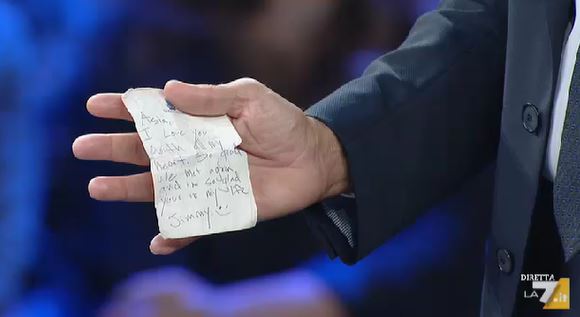 Asia,
I Love you
with all my
heart. So glad
we met again,
and im so glad
your in my life
Jimmy :)
DIRETTA
LA7.it